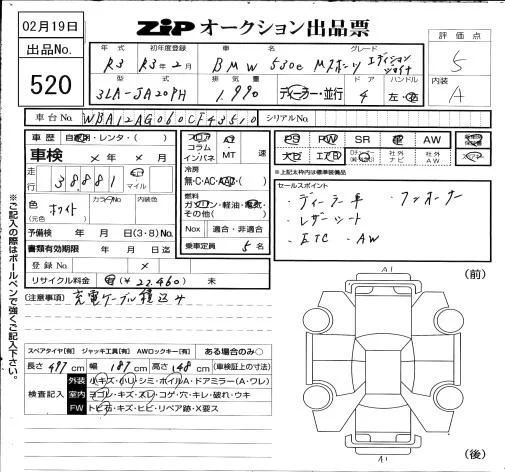 02月19日
出品No.
520
ZIP オークション出品票
評価点
5
内装
A
年式
R3
初年度登録
R3年2月
車名
BMW 530e Mスポーツ
グレード
エディションジョイナ
型式
3LA-JA20PH
排気量
1,990
ディーラー・並行
ドア
4
ハンドル
左・右
車台No.
WBA12AG060CF43510
シリアルNo.
車歴 自家用・レンタ・( )
車検 × 年 × 月
走行 38,881 km マイル
色(元色) ホワイト
カラーNo.
内装色
予備検 年 月 日(3・8)No.
書類有効期限 年 月 日迄
登録No. ×
リサイクル料金 有(¥ 22,460) 未
(注意事項) 充電ケーブル積込み
フロア
コラム
インパネ
AT
・MT
速
冷房
無・C・AC・AAC・( )
燃料
ガソリン・軽油・電気・
その他( )
Nox 適合・非適合
乗車定員 5名
PS PW SR 革 AW
ナビ エアB
社外ナビ
社外AW
※上記太枠内は標準装備品
セールスポイント
・ディーラー車
・レザーシート
・ETC ・AW
スペアタイヤ[有] ジャッキ工具[有] AWロックキー[有] ある場合のみ〇
長さ 497cm 幅 187cm 高さ 148cm (車検証上の寸法)
検査記入
外装 小キズ・小U・シミ・ホイルA・ドアミラー(A・ワレ)
室内 ヨゴレ・キズ・スレ・コゲ・穴・キレ・破れ・ウキ
FW トビ石・キズ・ヒビ・リペア跡・X要ス
※ご記入の際はボールペンで強くご記入下さい。
(前)
A1
A1
(後)